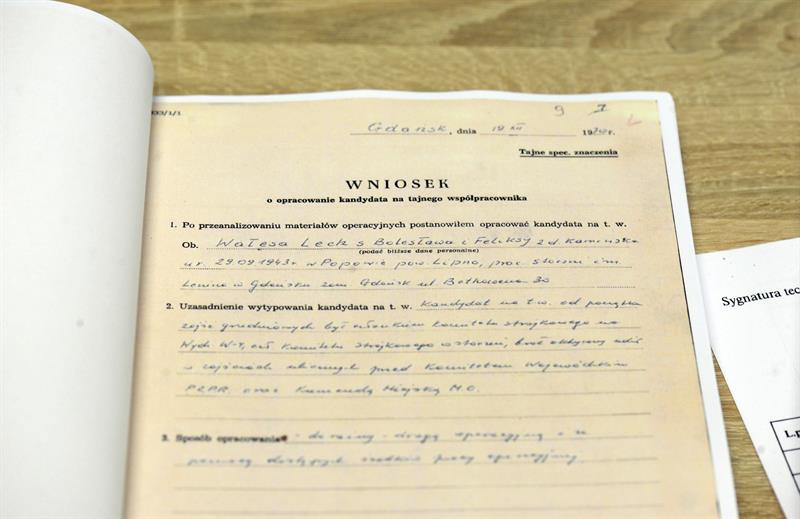 9 1
Gdańsk, dnia 19 XII 1970 r.
Tajne spec. znaczenia
WNIOSEK
o opracowanie kandydata na tajnego współpracownika
1. Po przeanalizowaniu materiałów operacyjnych postanowiłem opracować kandydata na t. w.
Ob. Wałęsa Lech s Bolesława i Feliksy z d. Kamińska
(podać bliższe dane personalne)
ur. 29.09.1943 r. w Popowie pow. Lipno, prac. stoczni im
Lenina w Gdańsku zam. Gdańsk ul
2. Uzasadnienie wytypowania kandydata na t. w. Kandydat na t.w. od początku
zajść grudniowych był członkiem komitetu strajkowego na
Wydz. W-4, Komitetu strajkowego stoczni, brał aktywny udz.
w zajściach ulicznych przed Komitetem Wojewódzkim
PZPR. oraz Komendą Miejską M.O.
3. Sposób opracowania - drogą operacyjną i z
pomocą dostępnych środków pracy operacyjnej.
Sygnatura tec
L.p